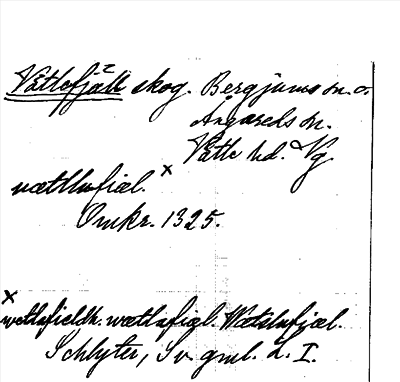 Vättlefjäll skog. Bergjums sn. o.
Angereds sn.
Vättle hd. Vg.
wætthlufiæl. x
Omkr. 1325.
x
wætlefieldh. wætlæfiæl. Wætslæfiæl.
Schlyter, Sv. gml. L. I.